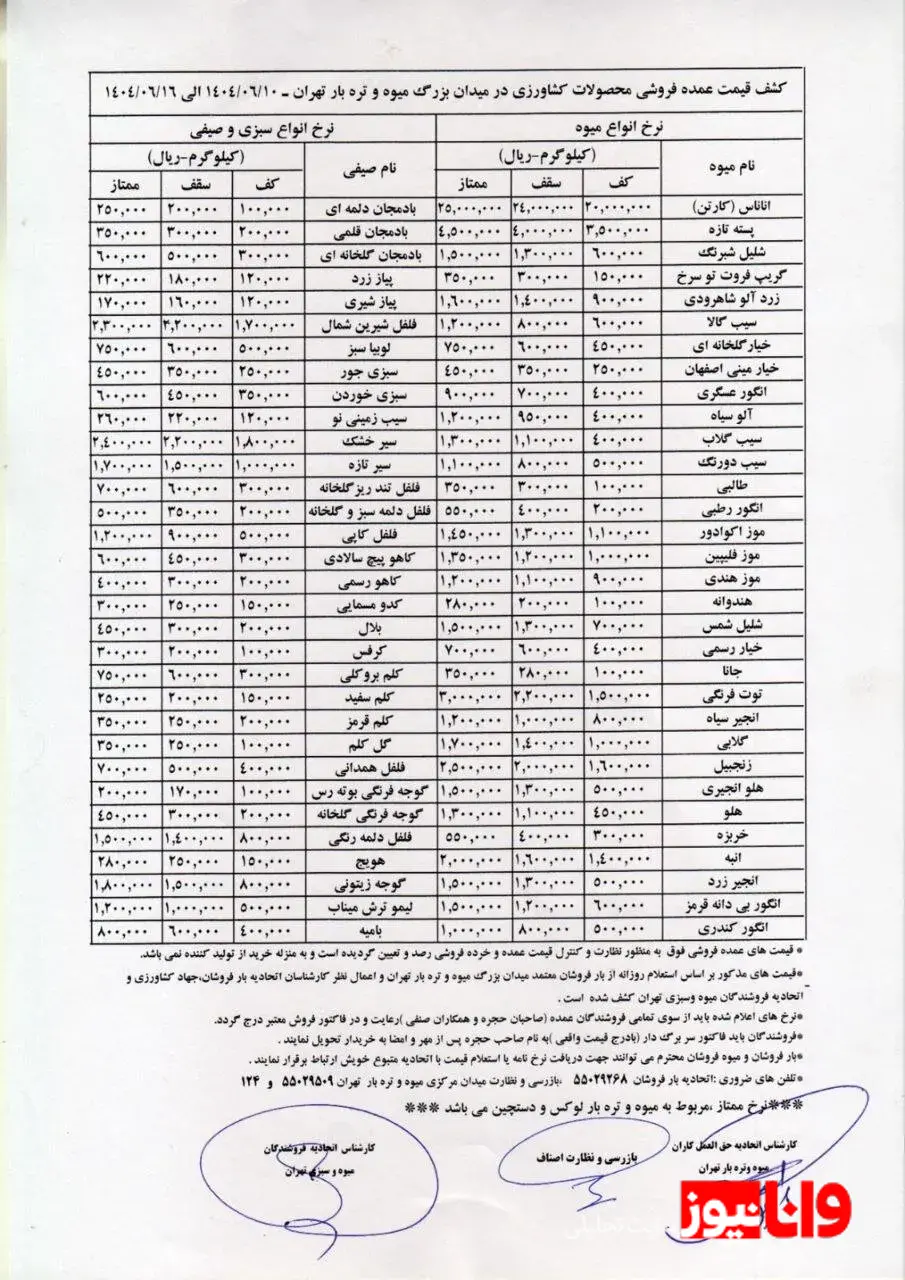 کشف قیمت عمده فروشی محصولات کشاورزی در میدان بزرگ میوه و تره بار تهران ـ ۱۴۰۴/۰۶/۱۰ الی ۱۴۰۴/۰۶/۱۶
نرخ انواع میوه نرخ انواع سبزی و صیفی
نام میوه (کیلوگرم-ریال) نام صیفی (کیلوگرم-ریال)
کف سقف ممتاز کف سقف ممتاز
اناناس (کارتن) ۲۰,۰۰۰,۰۰۰ ۲۴,۰۰۰,۰۰۰ ۲۵,۰۰۰,۰۰۰ بادمجان دلمه ای ۱۰۰,۰۰۰ ۲۰۰,۰۰۰ ۲۵۰,۰۰۰
پسته تازه ۳,۵۰۰,۰۰۰ ۴,۰۰۰,۰۰۰ ۴,۵۰۰,۰۰۰ بادمجان قلمی ۲۰۰,۰۰۰ ۳۰۰,۰۰۰ ۳۵۰,۰۰۰
شلیل شبرنگ ۶۰۰,۰۰۰ ۱,۳۰۰,۰۰۰ ۱,۵۰۰,۰۰۰ بادمجان گلخانه ای ۳۰۰,۰۰۰ ۵۰۰,۰۰۰ ۶۰۰,۰۰۰
گریپ فروت تو سرخ ۱۵۰,۰۰۰ ۳۰۰,۰۰۰ ۳۵۰,۰۰۰ پیاز زرد ۱۲۰,۰۰۰ ۱۸۰,۰۰۰ ۲۲۰,۰۰۰
زرد آلو شاهرودی ۹۰۰,۰۰۰ ۱,۴۰۰,۰۰۰ ۱,۶۰۰,۰۰۰ پیاز شیری ۱۲۰,۰۰۰ ۱۶۰,۰۰۰ ۱۷۰,۰۰۰
سیب گالا ۶۰۰,۰۰۰ ۸۰۰,۰۰۰ ۱,۲۰۰,۰۰۰ فلفل شیرین شمال ۱,۷۰۰,۰۰۰ ۲,۲۰۰,۰۰۰ ۲,۳۰۰,۰۰۰
خیار گلخانه ای ۴۵۰,۰۰۰ ۶۰۰,۰۰۰ ۷۵۰,۰۰۰ لوبیا سبز ۵۰۰,۰۰۰ ۶۰۰,۰۰۰ ۷۵۰,۰۰۰
خیار مینی اصفهان ۲۵۰,۰۰۰ ۳۵۰,۰۰۰ ۴۵۰,۰۰۰ سبزی جور ۲۵۰,۰۰۰ ۳۵۰,۰۰۰ ۴۵۰,۰۰۰
انگور عسگری ۴۰۰,۰۰۰ ۷۰۰,۰۰۰ ۹۰۰,۰۰۰ سبزی خوردن ۳۵۰,۰۰۰ ۴۵۰,۰۰۰ ۶۰۰,۰۰۰
آلو سیاه ۴۰۰,۰۰۰ ۹۵۰,۰۰۰ ۱,۲۰۰,۰۰۰ سیب زمینی نو ۱۲۰,۰۰۰ ۲۲۰,۰۰۰ ۲۶۰,۰۰۰
سیب گلاب ۴۰۰,۰۰۰ ۱,۱۰۰,۰۰۰ ۱,۳۰۰,۰۰۰ سیر خشک ۱,۸۰۰,۰۰۰ ۲,۲۰۰,۰۰۰ ۲,۴۰۰,۰۰۰
سیب دورنگ ۵۰۰,۰۰۰ ۸۰۰,۰۰۰ ۱,۱۰۰,۰۰۰ سیر تازه ۱,۰۰۰,۰۰۰ ۱,۵۰۰,۰۰۰ ۱,۷۰۰,۰۰۰
طالبی ۱۰۰,۰۰۰ ۳۰۰,۰۰۰ ۳۵۰,۰۰۰ فلفل تند ریز گلخانه ۳۰۰,۰۰۰ ۶۰۰,۰۰۰ ۷۰۰,۰۰۰
انگور رطبی ۲۰۰,۰۰۰ ۴۰۰,۰۰۰ ۵۵۰,۰۰۰ فلفل دلمه سبز و گلخانه ۲۰۰,۰۰۰ ۳۵۰,۰۰۰ ۵۰۰,۰۰۰
موز اکوادور ۱,۱۰۰,۰۰۰ ۱,۳۰۰,۰۰۰ ۱,۴۵۰,۰۰۰ فلفل کاپی ۵۰۰,۰۰۰ ۹۰۰,۰۰۰ ۱,۲۰۰,۰۰۰
موز فلیپین ۱,۰۰۰,۰۰۰ ۱,۲۰۰,۰۰۰ ۱,۳۵۰,۰۰۰ کاهو پیچ سالادی ۳۰۰,۰۰۰ ۴۵۰,۰۰۰ ۶۰۰,۰۰۰
موز هندی ۹۰۰,۰۰۰ ۱,۱۰۰,۰۰۰ ۱,۲۰۰,۰۰۰ کاهو رسمی ۲۰۰,۰۰۰ ۳۰۰,۰۰۰ ۴۰۰,۰۰۰
هندوانه ۱۰۰,۰۰۰ ۲۰۰,۰۰۰ ۲۸۰,۰۰۰ کدو مسمایی ۱۵۰,۰۰۰ ۲۵۰,۰۰۰ ۳۰۰,۰۰۰
شلیل شمس ۷۰۰,۰۰۰ ۱,۳۰۰,۰۰۰ ۱,۵۰۰,۰۰۰ بلال ۲۰۰,۰۰۰ ۳۰۰,۰۰۰ ۴۵۰,۰۰۰
خیار رسمی ۴۰۰,۰۰۰ ۶۰۰,۰۰۰ ۷۰۰,۰۰۰ کرفس ۱۰۰,۰۰۰ ۲۰۰,۰۰۰ ۳۰۰,۰۰۰
جانا ۱۰۰,۰۰۰ ۲۸۰,۰۰۰ ۳۵۰,۰۰۰ کلم بروکلی ۳۰۰,۰۰۰ ۶۰۰,۰۰۰ ۷۵۰,۰۰۰
توت فرنگی ۱,۵۰۰,۰۰۰ ۲,۲۰۰,۰۰۰ ۳,۰۰۰,۰۰۰ کلم سفید ۱۵۰,۰۰۰ ۲۰۰,۰۰۰ ۲۵۰,۰۰۰
انجیر سیاه ۸۰۰,۰۰۰ ۱,۰۰۰,۰۰۰ ۱,۲۰۰,۰۰۰ کلم قرمز ۲۰۰,۰۰۰ ۲۵۰,۰۰۰ ۳۵۰,۰۰۰
گلابی ۱,۰۰۰,۰۰۰ ۱,۴۰۰,۰۰۰ ۱,۷۰۰,۰۰۰ گل کلم ۱۰۰,۰۰۰ ۲۵۰,۰۰۰ ۳۵۰,۰۰۰
زنجبیل ۱,۶۰۰,۰۰۰ ۲,۰۰۰,۰۰۰ ۲,۵۰۰,۰۰۰ فلفل همدانی ۴۰۰,۰۰۰ ۵۰۰,۰۰۰ ۷۰۰,۰۰۰
هلو انجیری ۵۰۰,۰۰۰ ۱,۳۰۰,۰۰۰ ۱,۵۰۰,۰۰۰ گوجه فرنگی بوته رس ۱۰۰,۰۰۰ ۱۷۰,۰۰۰ ۲۰۰,۰۰۰
هلو ۴۵۰,۰۰۰ ۱,۱۰۰,۰۰۰ ۱,۳۰۰,۰۰۰ گوجه فرنگی گلخانه ۲۰۰,۰۰۰ ۳۰۰,۰۰۰ ۴۵۰,۰۰۰
خربزه ۳۰۰,۰۰۰ ۴۰۰,۰۰۰ ۵۵۰,۰۰۰ فلفل دلمه رنگی ۸۰۰,۰۰۰ ۱,۴۰۰,۰۰۰ ۱,۵۰۰,۰۰۰
انبه ۱,۴۰۰,۰۰۰ ۱,۶۰۰,۰۰۰ ۲,۰۰۰,۰۰۰ هویج ۱۵۰,۰۰۰ ۲۵۰,۰۰۰ ۲۸۰,۰۰۰
انجیر زرد ۵۰۰,۰۰۰ ۱,۳۰۰,۰۰۰ ۱,۵۰۰,۰۰۰ گوجه زیتونی ۸۰۰,۰۰۰ ۱,۵۰۰,۰۰۰ ۱,۸۰۰,۰۰۰
انگور بی دانه قرمز ۶۰۰,۰۰۰ ۱,۲۰۰,۰۰۰ ۱,۵۰۰,۰۰۰ لیمو ترش میناب ۵۰۰,۰۰۰ ۱,۰۰۰,۰۰۰ ۱,۲۰۰,۰۰۰
انگور کندری ۵۰۰,۰۰۰ ۸۰۰,۰۰۰ ۱,۰۰۰,۰۰۰ بامیه ۴۰۰,۰۰۰ ۶۰۰,۰۰۰ ۸۰۰,۰۰۰
* قیمت های عمده فروشی فوق به منظور نظارت و کنترل قیمت عمده و خرده فروشی رصد و تعیین گردیده است و به منزله خرید از تولید کننده نمی باشد.
*قیمت های مذکور بر اساس استعلام روزانه از بار فروشان معتمد میدان بزرگ میوه و تره بار تهران و اعمال نظر کارشناسان اتحادیه بار فروشان،جهاد کشاورزی و
اتحادیه فروشندگان میوه وسبزی تهران کشف شده است .
*نرخ های اعلام شده باید از سوی تمامی فروشندگان عمده (صاحبان حجره و همکاران صنفی )رعایت و در فاکتور فروش معتبر درج گردد.
*فروشندگان باید فاکتور سر برگ دار (بادرج قیمت واقعی )به نام صاحب حجره پس از مهر و امضا به خریدار تحویل نمایند .
*بار فروشان و میوه فروشان محترم می توانند جهت دریافت نرخ نامه یا استعلام قیمت با اتحادیه متبوع خویش ارتباط برقرار نمایند .
*تلفن های ضروری :اتحادیه بار فروشان ۵۵۰۲۹۲۶۸ ،بازرسی و نظارت میدان مرکزی میوه و تره بار تهران ۵۵۰۲۹۵۰۹ و ۱۲۴
***نرخ ممتاز ،مربوط به میوه و تره بار لوکس و دستچین می باشد ***
کارشناس اتحادیه حق العمل کاران
میوه وتره بار تهران
بازرسی و نظارت اصناف
کارشناس اتحادیه فروشندگان
میوه و سبزی تهران
وانانیوز